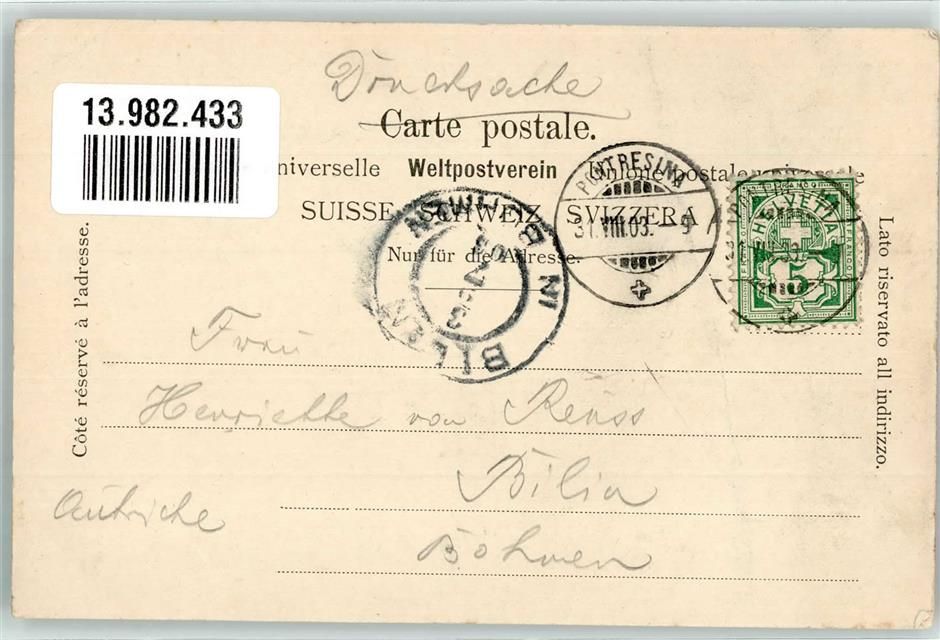 Drucksache
13.982.433
Carte postale.
niverselle Weltpostverein Unione postale universale
SUISSE. SCHWEIZ. SVIZZERA
Nur für die Adresse.
PONTRESINA
31.VIII.03. - 9
BILIN IN BÖHMEN
HELVETIA
5
FRANCO
Côté réservé à l'adresse.
Lato riservato all indirizzo.
Frau
Henriette von Reuss
Bilin
Autriche
Böhmen